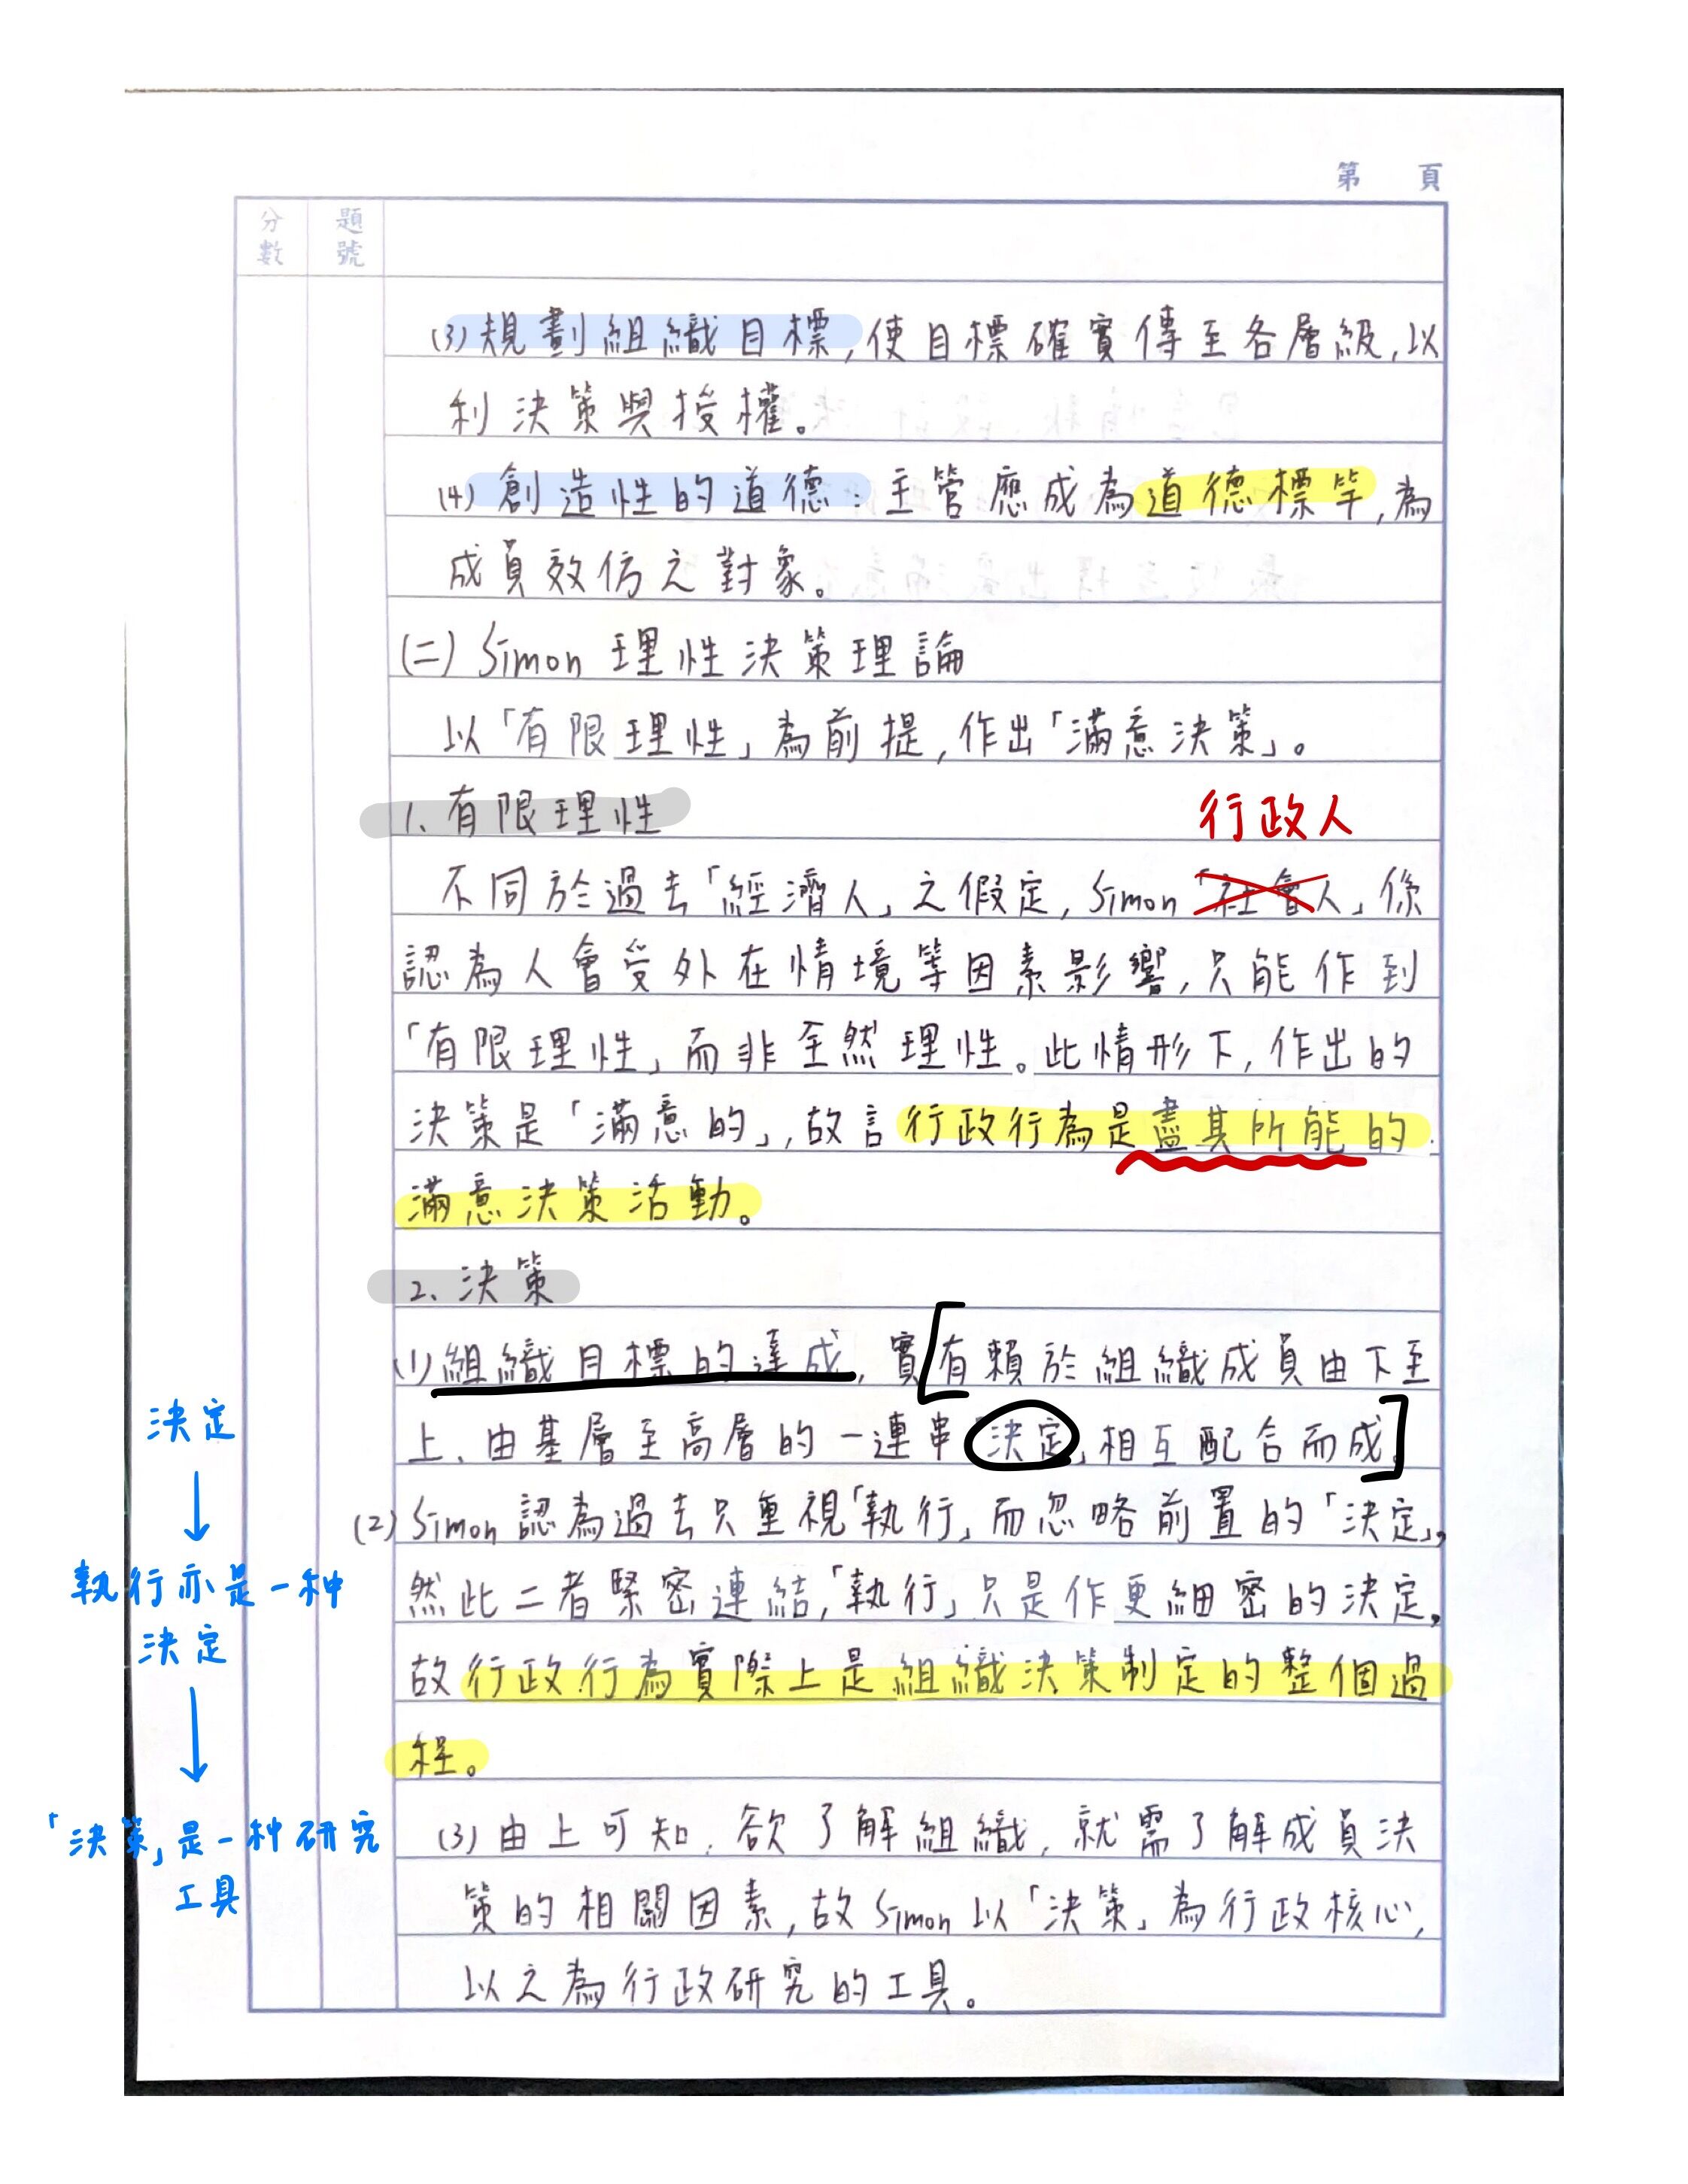 第 頁
分數 題號
(3)規劃組織目標,使目標確實傳至各層級,以
利決策與授權。
(4)創造性的道德:主管應成為道德標竿,為
成員效仿之對象。
(二)Simon 理性決策理論
以「有限理性」為前提,作出「滿意決策」。
1、有限理性
行政人
不同於過去「經濟人」之假定,Simon「社會人」係
認為人會受外在情境等因素影響,只能作到
「有限理性」而非全然理性。此情形下,作出的
決策是「滿意的」,故言行政行為是盡其所能的
滿意決策活動。
2、決策
(1)組織目標的達成,實有賴於組織成員由下至
上、由基層至高層的一連串「決定」,相互配合而成。
(2)Simon 認為過去只重視「執行」而忽略前置的「決定」,
然此二者緊密連結,「執行」只是作更細密的決定,
故行政行為實際上是組織決策制定的整個過
程。
(3)由上可知,欲了解組織,就需了解成員決
策的相關因素,故 Simon 以「決策」為行政核心,
以之為行政研究的工具。
決定
↓
執行亦是一种
決定
↓
「決策」是一种研究
工具